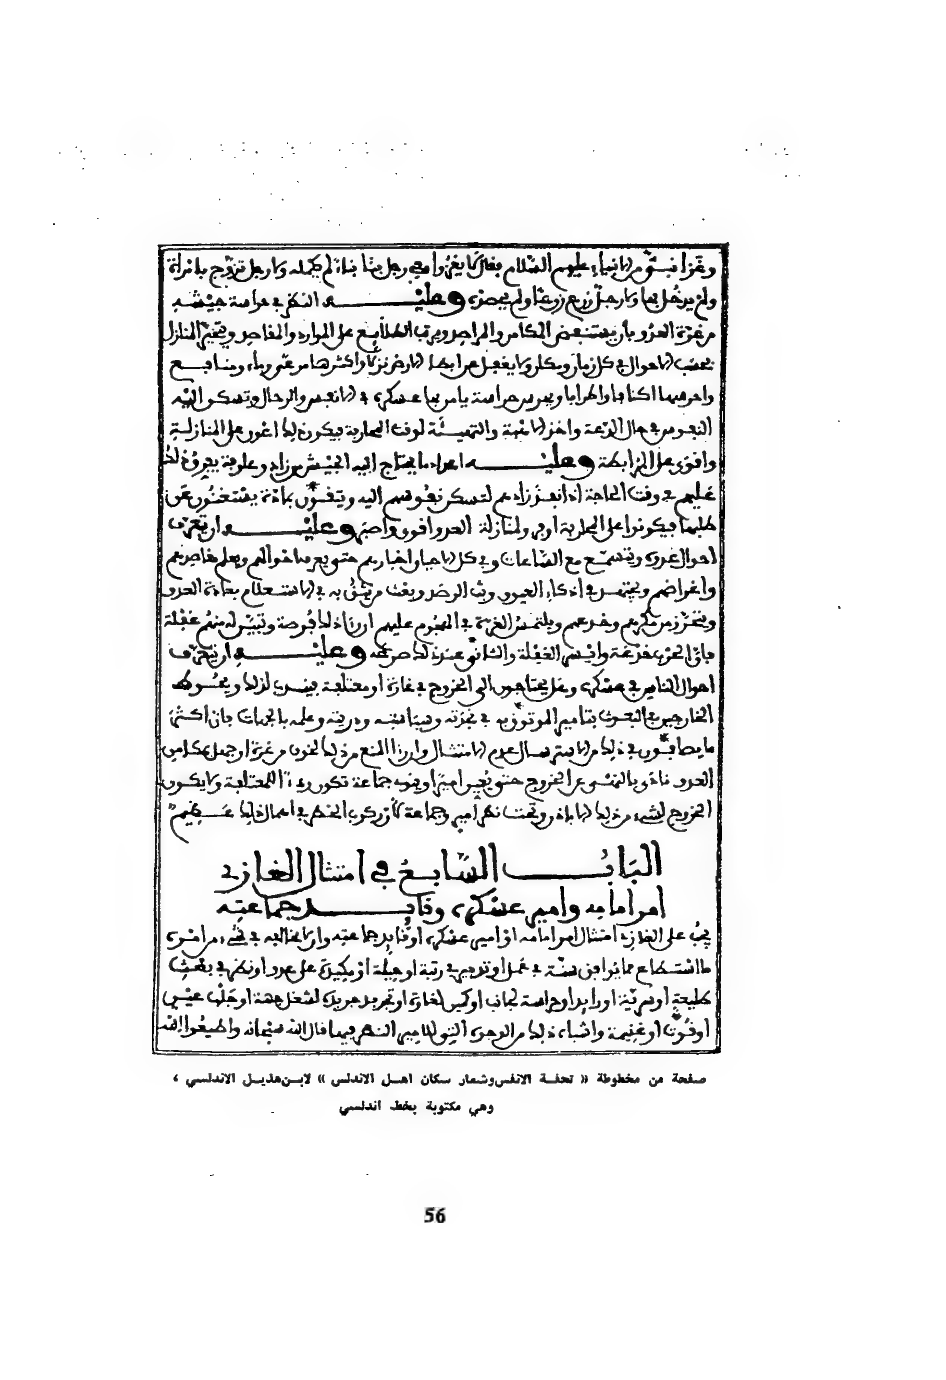 وغزا نبي من الانبياء عليهم السلام فقال لا يغزوا معي رجل بنا بناء لم يكمله ولا رجل تزوج بامراة
ولم يدخل بها ولا رجل زرع زرعا ولم يحصده وعليه النظر في حراسة جيشه
من غرة العدو بان يفتض المكامن والمراصد ويرتب الطلايع على الموارد والمقاصد ويتخير المنازل
بحسب الاحوال في كل زمان ومكان ولا يغفل عن ابها الارض نزلا واكثرها مرعى وماء ومنابع
واحرسها اكنافا واطرافا ويحرس حراسة يامن بها عسكره في الانفس والرحال وتسكن اليه
النفوس في حال الدعة واخذ الاهبة والتهيئة لوقت المحاربة فيكون ذلك اعون على المنازلة
واقوى على المرابطة وعليه اعداد ما يحتاج اليه الجيش من زاد وعلوفة يفرق ذلك
عليهم في وقت الحاجة اذا نفد زادهم لتسكن نفوسهم اليه ويتقون بمادة يستغنون عن
طلبها فيكونوا على المحاربة اوفر ولمنازلة العدو اقوى واصبر وعليه ان يتعرف
احوال عدوه ويتسمع مع الساعات وفي كل الاحيان اخبارهم حتى يعرف احوالهم ويعلم مقاصدهم
واغراضهم ويجتهد في اذكاء العيون وبث الرصد وبعث من يثق به في الاستعلام بعادة العدو
ويتحرز من مكرهم وخدعهم ويلتمس الغرة في الهجوم عليهم ان راى ذلك فرصة وتبين له منهم غفلة
فان الحرب خدعة وليس الغفلة والتانى عند ذلك من صرفه وعليه ان يتعرف
احوال الناس في عسكره وهل يحتاجون الى الخروج في غارة او معتلفة فيندب لذلك ويحوط
الخارجين عن البعوث بتامير الموثوق به في نجدته وسياسته ودريته وعلمه بالجهات فان اكثر
ما يصابون في ذلك من قبل عدم الامتثال وان راى المنع من ذلك لخوف من غرة او جهل بمكامن
العدو نادى بالنهي عن الخروج حتى يعين اميرا ويوجه جماعة تكون ردءا للمعتلفة ولا يكون
الخروج لشيء من ذلك الا باذن وتحت نظر امير وجماعة لان ركوب الخطر في اهمال ذلك عظيم
الباب السابع في امتثال الغازي
امر امامه وامير عسكره وقايد جماعته
يجب على الغازي امتثال امر امامه او امير عسكره او قايد جماعته وان لا يخالفه في شيء من امره
ما استطاع مما يوافق سنة في عمل او ترتيب في رتبة او حيلة او مكيدة على عدو او نظر في بعث
طليعة او سرية او رايد او حراسة لجانب او كمين لغارة او تجريد جريدة لشغل همة او جلب عيش
او قوت او غنيمة واشباه ذلك من الوجوه التي للامير النظر فيها قال الله سبحانه واطيعوا الله
صفحة من مخطوطة « تحفة الانفس وشعار سكان اهل الاندلس » لابن هذيل الاندلسي ،
وهي مكتوبة بخط اندلسي
56